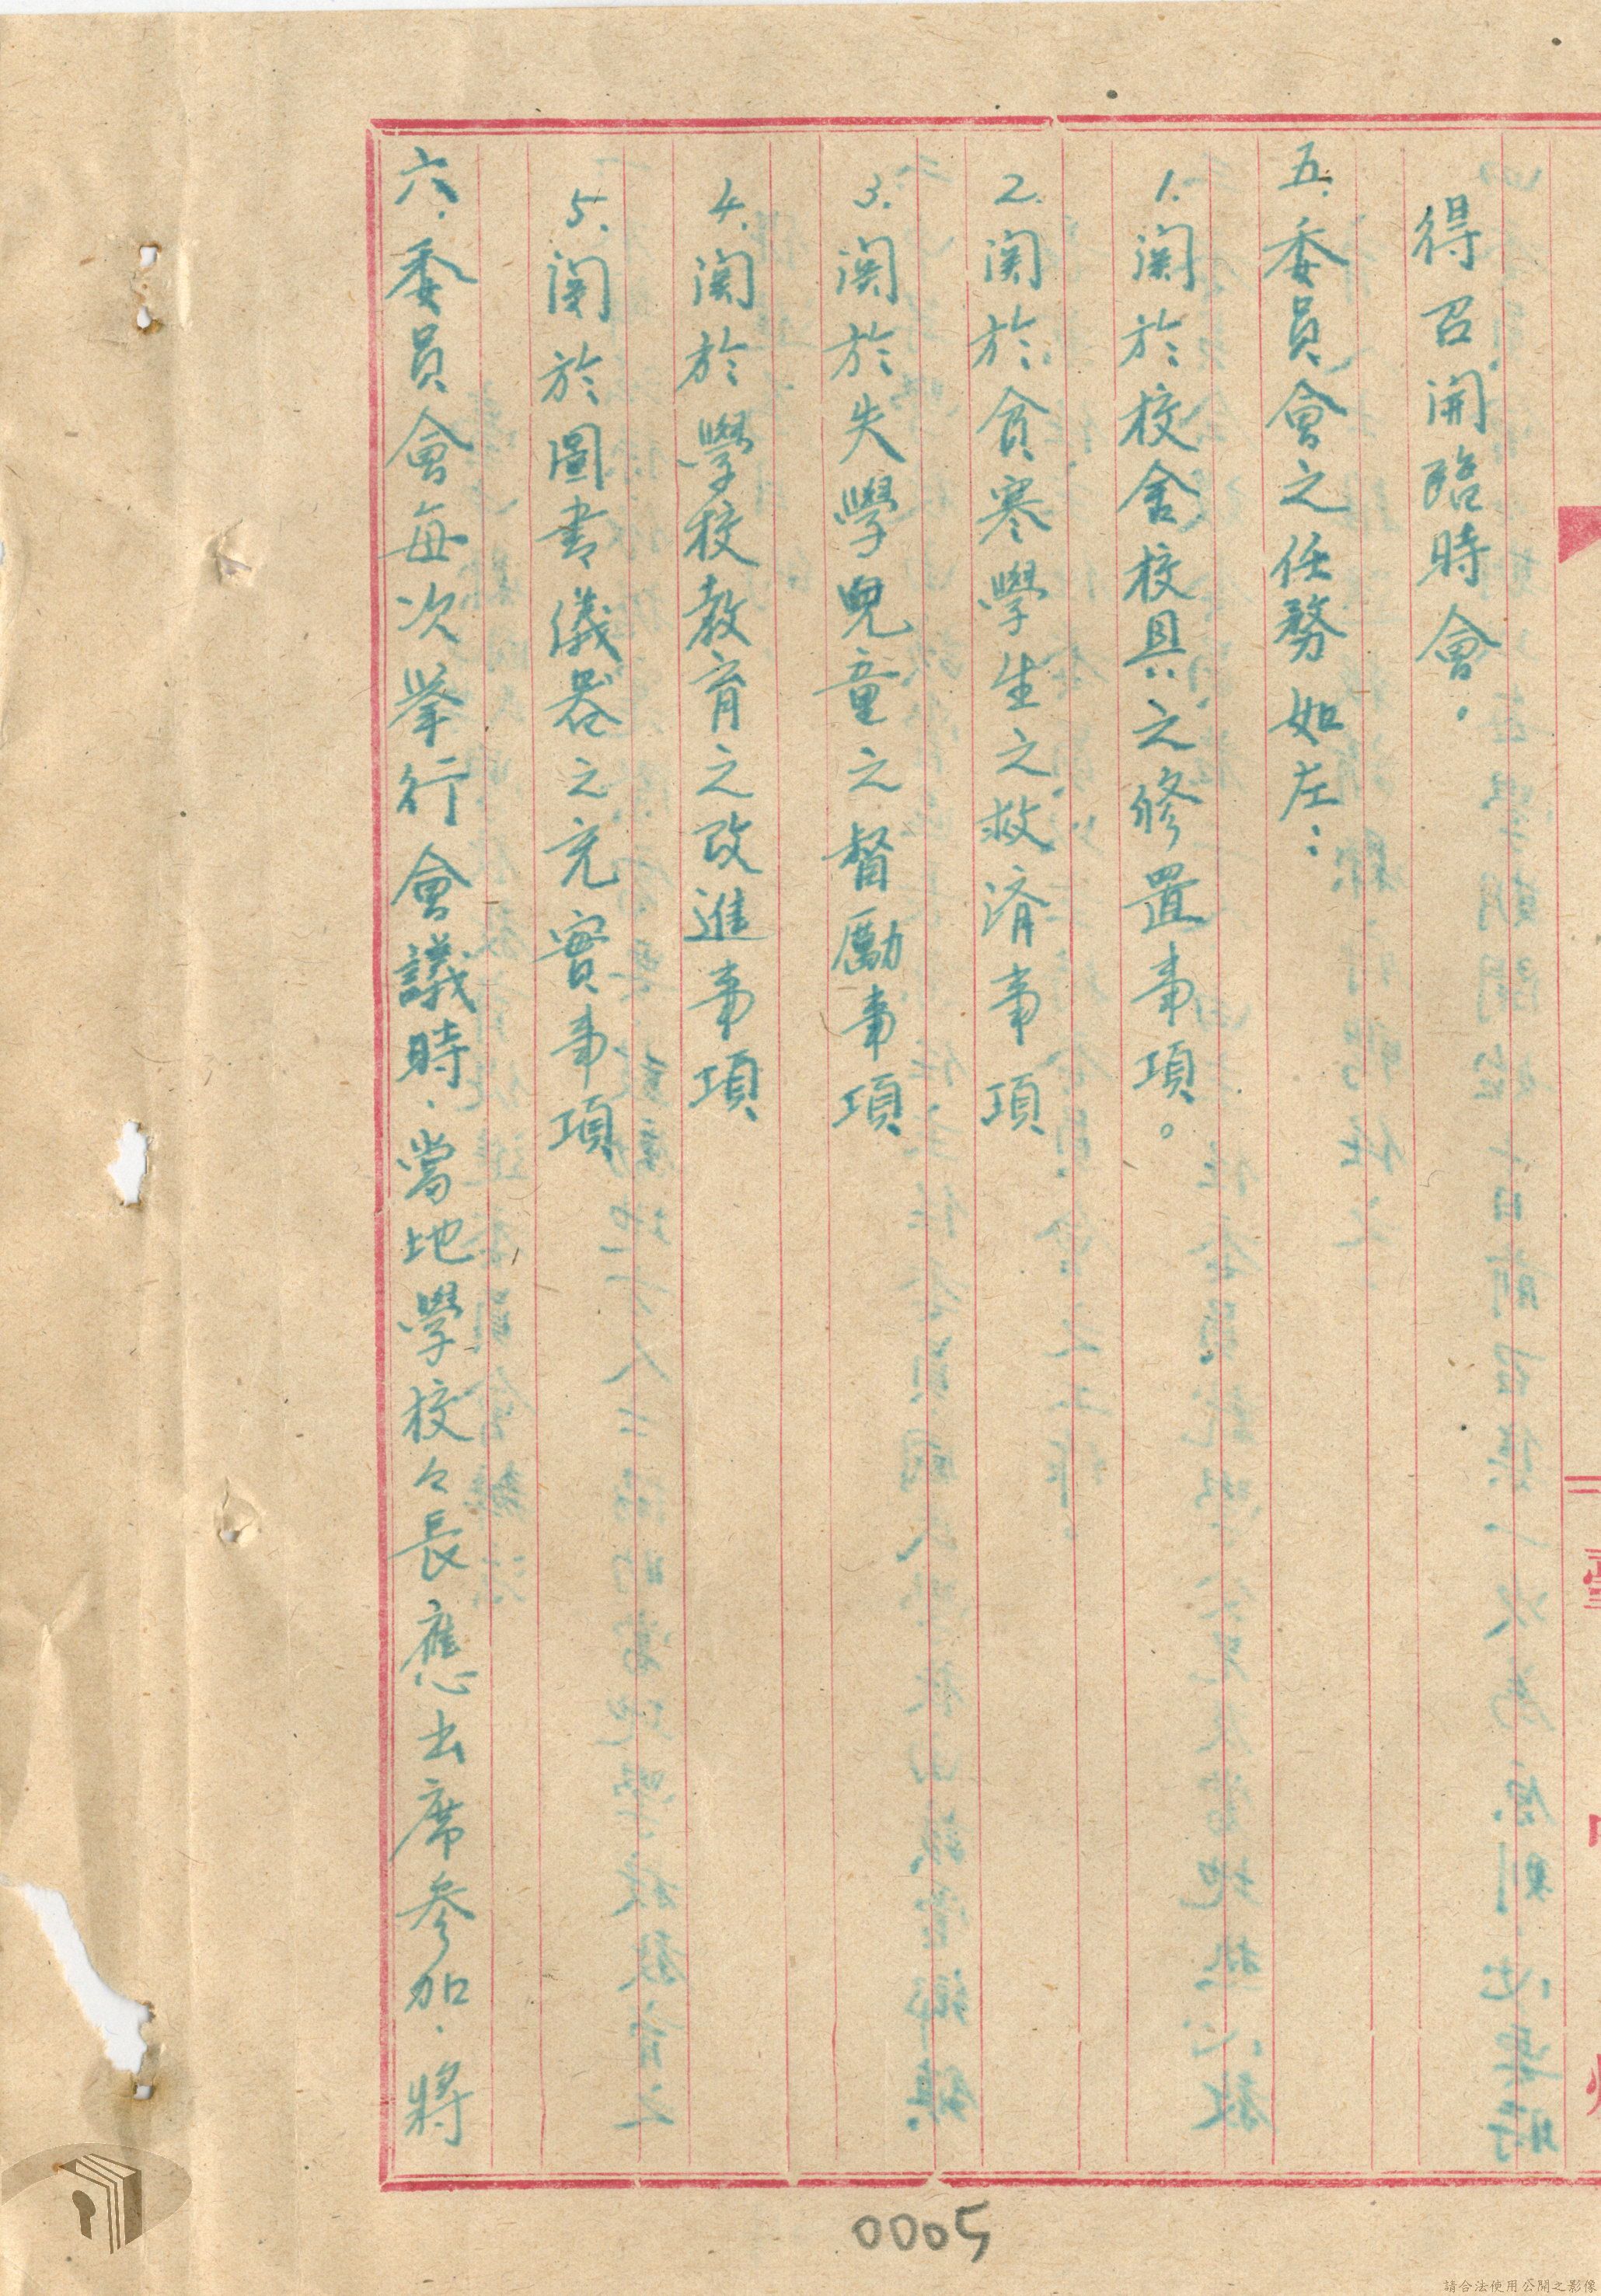 得召開臨時會.
五.委員會之任務如左:
1.関於校舍校具之修置事項。
2.関於貧寒學生之救済事項
3.関於失學兒童之督勵事項
4.関於學校教育之改進事項
5.関於圖書儀器之充實事項
六.委員會每次举行會議時.當地學校々長應出席参加.將
臺
0005
請合法使用公開之影像